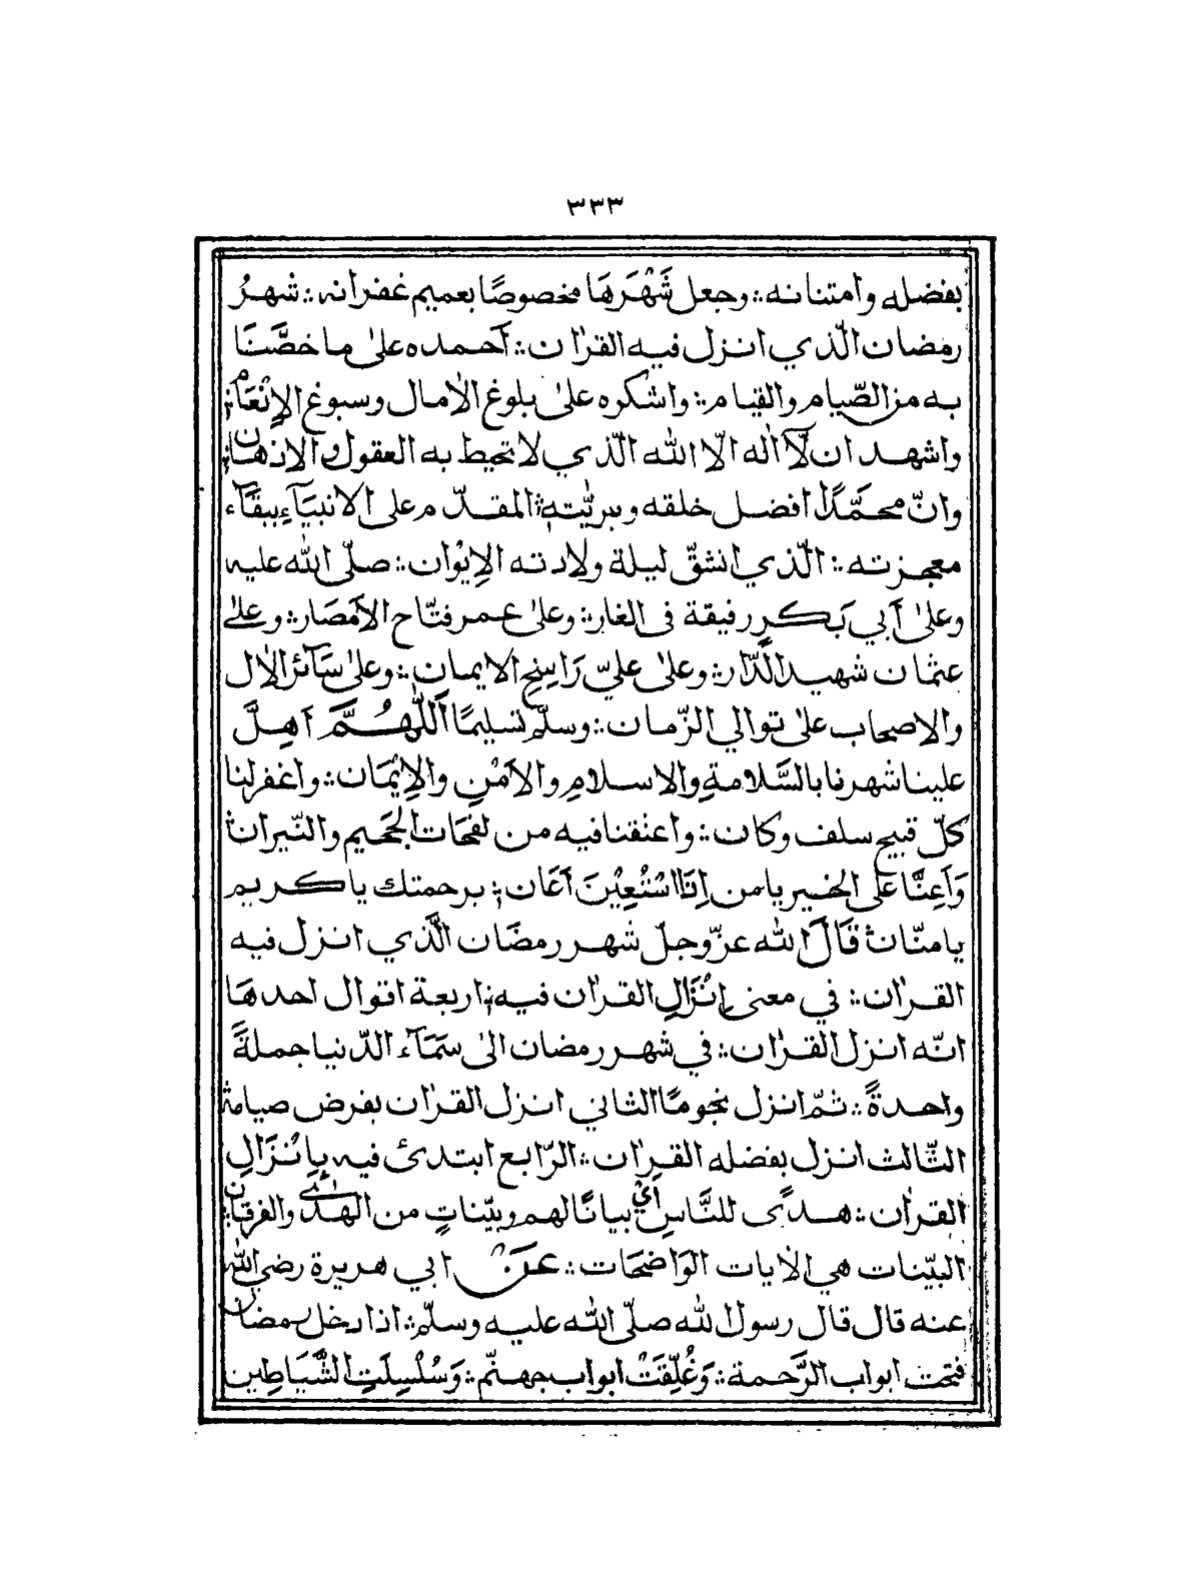 ٣٣٣
بفضله وامتنانه ؞ وجعل شَهْرَهَا مخصوصًا بعميم غفرانه ؞ شهرُ
رمضان الّذي انزل فيه القرٰان ؞ اَحمده علىٰ ما خصَّنَا
به من الصّيام والقيام ؞ واشكره علىٰ بلوغ الاٰمال وسبوغ الاِنْعَام ؞
واشهد ان لَآ اله الّا الله الّذي لا تحيط به العقول والاذهان ؞
وانّ محمَّدًا افضل خلقه وبريّته ؞ المقدّم على الانبيَآءِ ببقَآء
معجزته ؞ الّذي انشقّ ليلة ولادته الاِيْوان ؞ صلّى الله عليه
وعلىٰ اَبي بَكرٍ رفيقة فى الغار ؞ وعلىٰ عمر فتّاح الاَمصَار ؞ وعلىٰ
عثمان شهيد الدَّار ؞ وعلىٰ عليّ رَاسِخِ الايمان ؞ وعلىٰ سَآئر الاٰل
والاصحاب علىٰ توالي الزّمان ؞ وسلّم تسليمًا اَللّٰهُمَّ اَهِلَّ
علينا شهرنا بالسَّلامةِ والاسلامِ والاَمْنِ والاِيْمَان ؞ واغفر لنا
كلّ قبيح سلف وكان ؞ واعتقنا فيه من لفحات الجحيم والنّيران ؞
وَاَعِنَّا على الخير يا من اِذَا اسْتُعِيْنَ اَعَان ؞ برحمتك يا كريم
يا منّان ؞ قَالَ الله عزّوجلّ شهر رمضَان الَّذي انزل فيه
القرٰان ؞ في معنى اِنْزَالِ القرٰان فيه ؞ اربعة اقوال احدهَا
انّه انزل القرٰان ؞ في شهر رمضان الىٰ سَمَآء الدّنيا جملةً
واحدةً ؞ ثمّ انزل نجومًا الثاني انزل القرٰان بفرض صيامه ؞
الثّالث انزل بفضله القرٰان ؞ الرّابع ابتدئ فيه بِاِنْزَالِ
القرٰان ؞ هدًى للنَّاسِ اَيْ بيانًا لهم وبيّناتٍ من الهدٰى والفرقان ؞
البيّنات هي الاٰيات الوَاضحَات ؞ عَنْ ابي هريرة رضي الله
عنه قال قال رسول الله صلّى الله عليه وسلّم ؞ اذا دخل رمضان
فتحت ابواب الرَّحمة ؞ وَغُلِّقَتْ ابواب جهنّم ؞ وَسُلْسِلَتِ الشَّيَاطِين